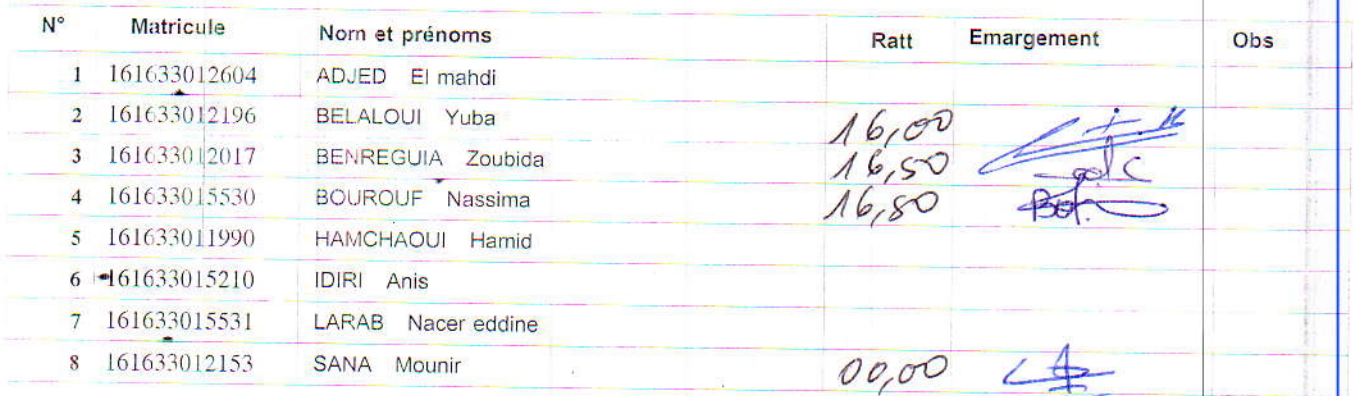 N° Matricule Nom et prénoms Ratt Emargement Obs
1 161633012604 ADJED El mahdi
2 161633012196 BELALOUI Yuba 16,00
3 161633012017 BENREGUIA Zoubida 16,50
4 161633015530 BOUROUF Nassima 16,50
5 161633011990 HAMCHAOUI Hamid
6 161633015210 IDIRI Anis
7 161633015531 LARAB Nacer eddine
8 161633012153 SANA Mounir 00,00